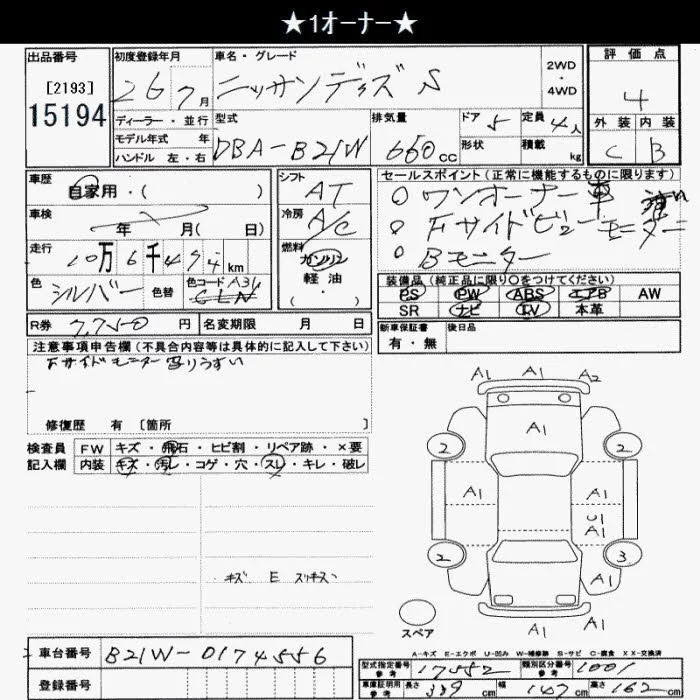 ★1オーナー★
出品番号 初度登録年月 車名・グレード 評価点
[2193] 26年7月 ニッサンデイズ S 2WD・4WD 4
15194
ディーラー・並行 型式 排気量 ドア 5 定員 4人 外装 内装
モデル年式 年 DBA-B21W 660cc 形状 積載 kg C B
ハンドル 左・右
車歴 シフト セールスポイント(正常に機能するものに限ります)
自家用・( ) AT ○ ワンオーナー車
車検 年 月( 日) 冷房 A/C ○ Fサイドビューモニター
走行 10万6千494km 燃料 ガソリン ○ Bモニター
軽油
( ・ )
色 シルバー 色替 色コード A31 CLN
装備品(純正品に限り○をつけてください)
PS PW ABS エアB AW
SR ナビ TV 本革
R券 7,750円 名変期限 月 日 新車保証書 後日品
有・無
注意事項申告欄(不具合内容等は具体的に記入して下さい)
Fサイドモニター写りうすい
修復歴 有 [箇所 ]
検査員 FW キズ・飛石・ヒビ割・リペア跡・×要
記入欄 内装 キズ・汚レ・コゲ・穴・スレ・キレ・破レ
キズ E
A1 A1 A2
A1
2 2
A1 A1
U1
A1
2 3
A1
A1 A1
スペア
A-キズ E-エクボ U-凹み W-補修跡 S-サビ C-腐食 XX-交換済
車台番号 B21W-0174556
登録番号
型式指定番号 参考 17552 類別区分番号 参考 1001
車庫証明用 参考 長さ 339cm 幅 147cm 高さ 162cm